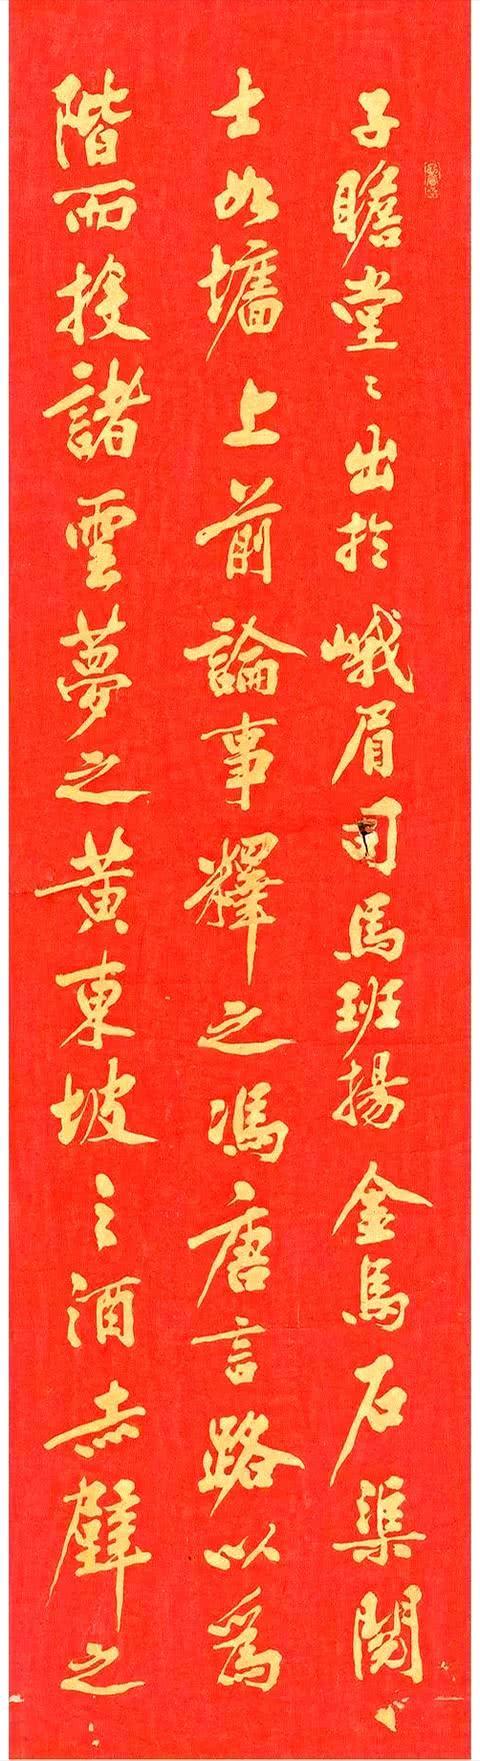 子瞻堂〻出於峨眉司馬班揚金馬石渠閱
士如墻上前論事釋之馮唐言路以為
階而投諸雲夢之黃東坡之酒赤壁之